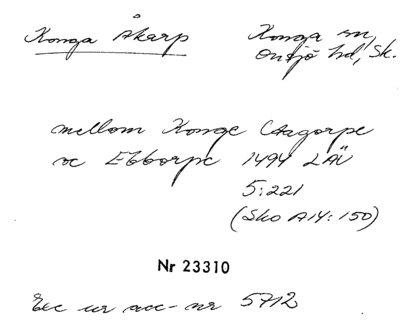 Konga Åkarp
Konga sn,
Onsjö hd, Sk.
mellom Konge Aagorpe
oc Ebborpe 1494 LÄU
5:221
(Sko A14:150)
Nr 23310
Exc ur acc-nr 5712